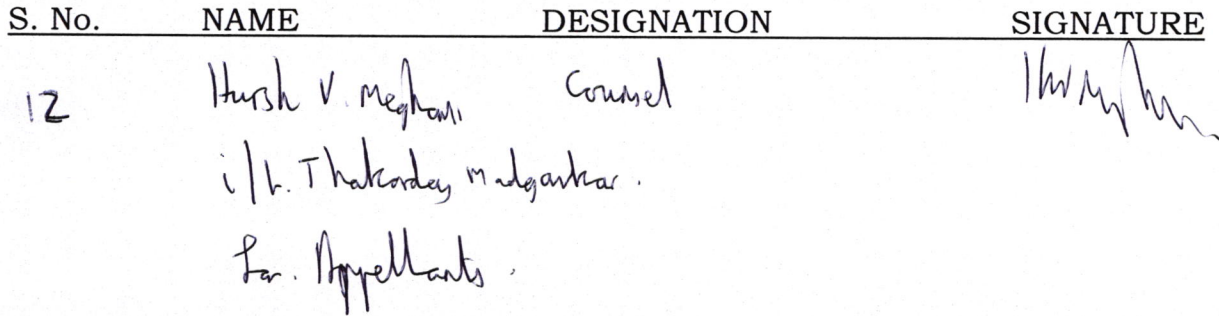 S. No. NAME DESIGNATION SIGNATURE
12 Hursh V. Meghani Counsel
i/b. Thakordas Madgavkar.
for. Appellants.